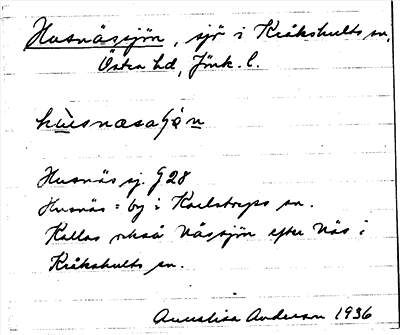 Husnäsjön, sjö i Kråkshults sn,
Östra hd, Jönk. l.
Husnäs sj. G28
Husnäs = by i Karlstorps sn.
Kallas också Nässjön efter Näs i
Kråkshults sn.
Annalisa Anderson 1936